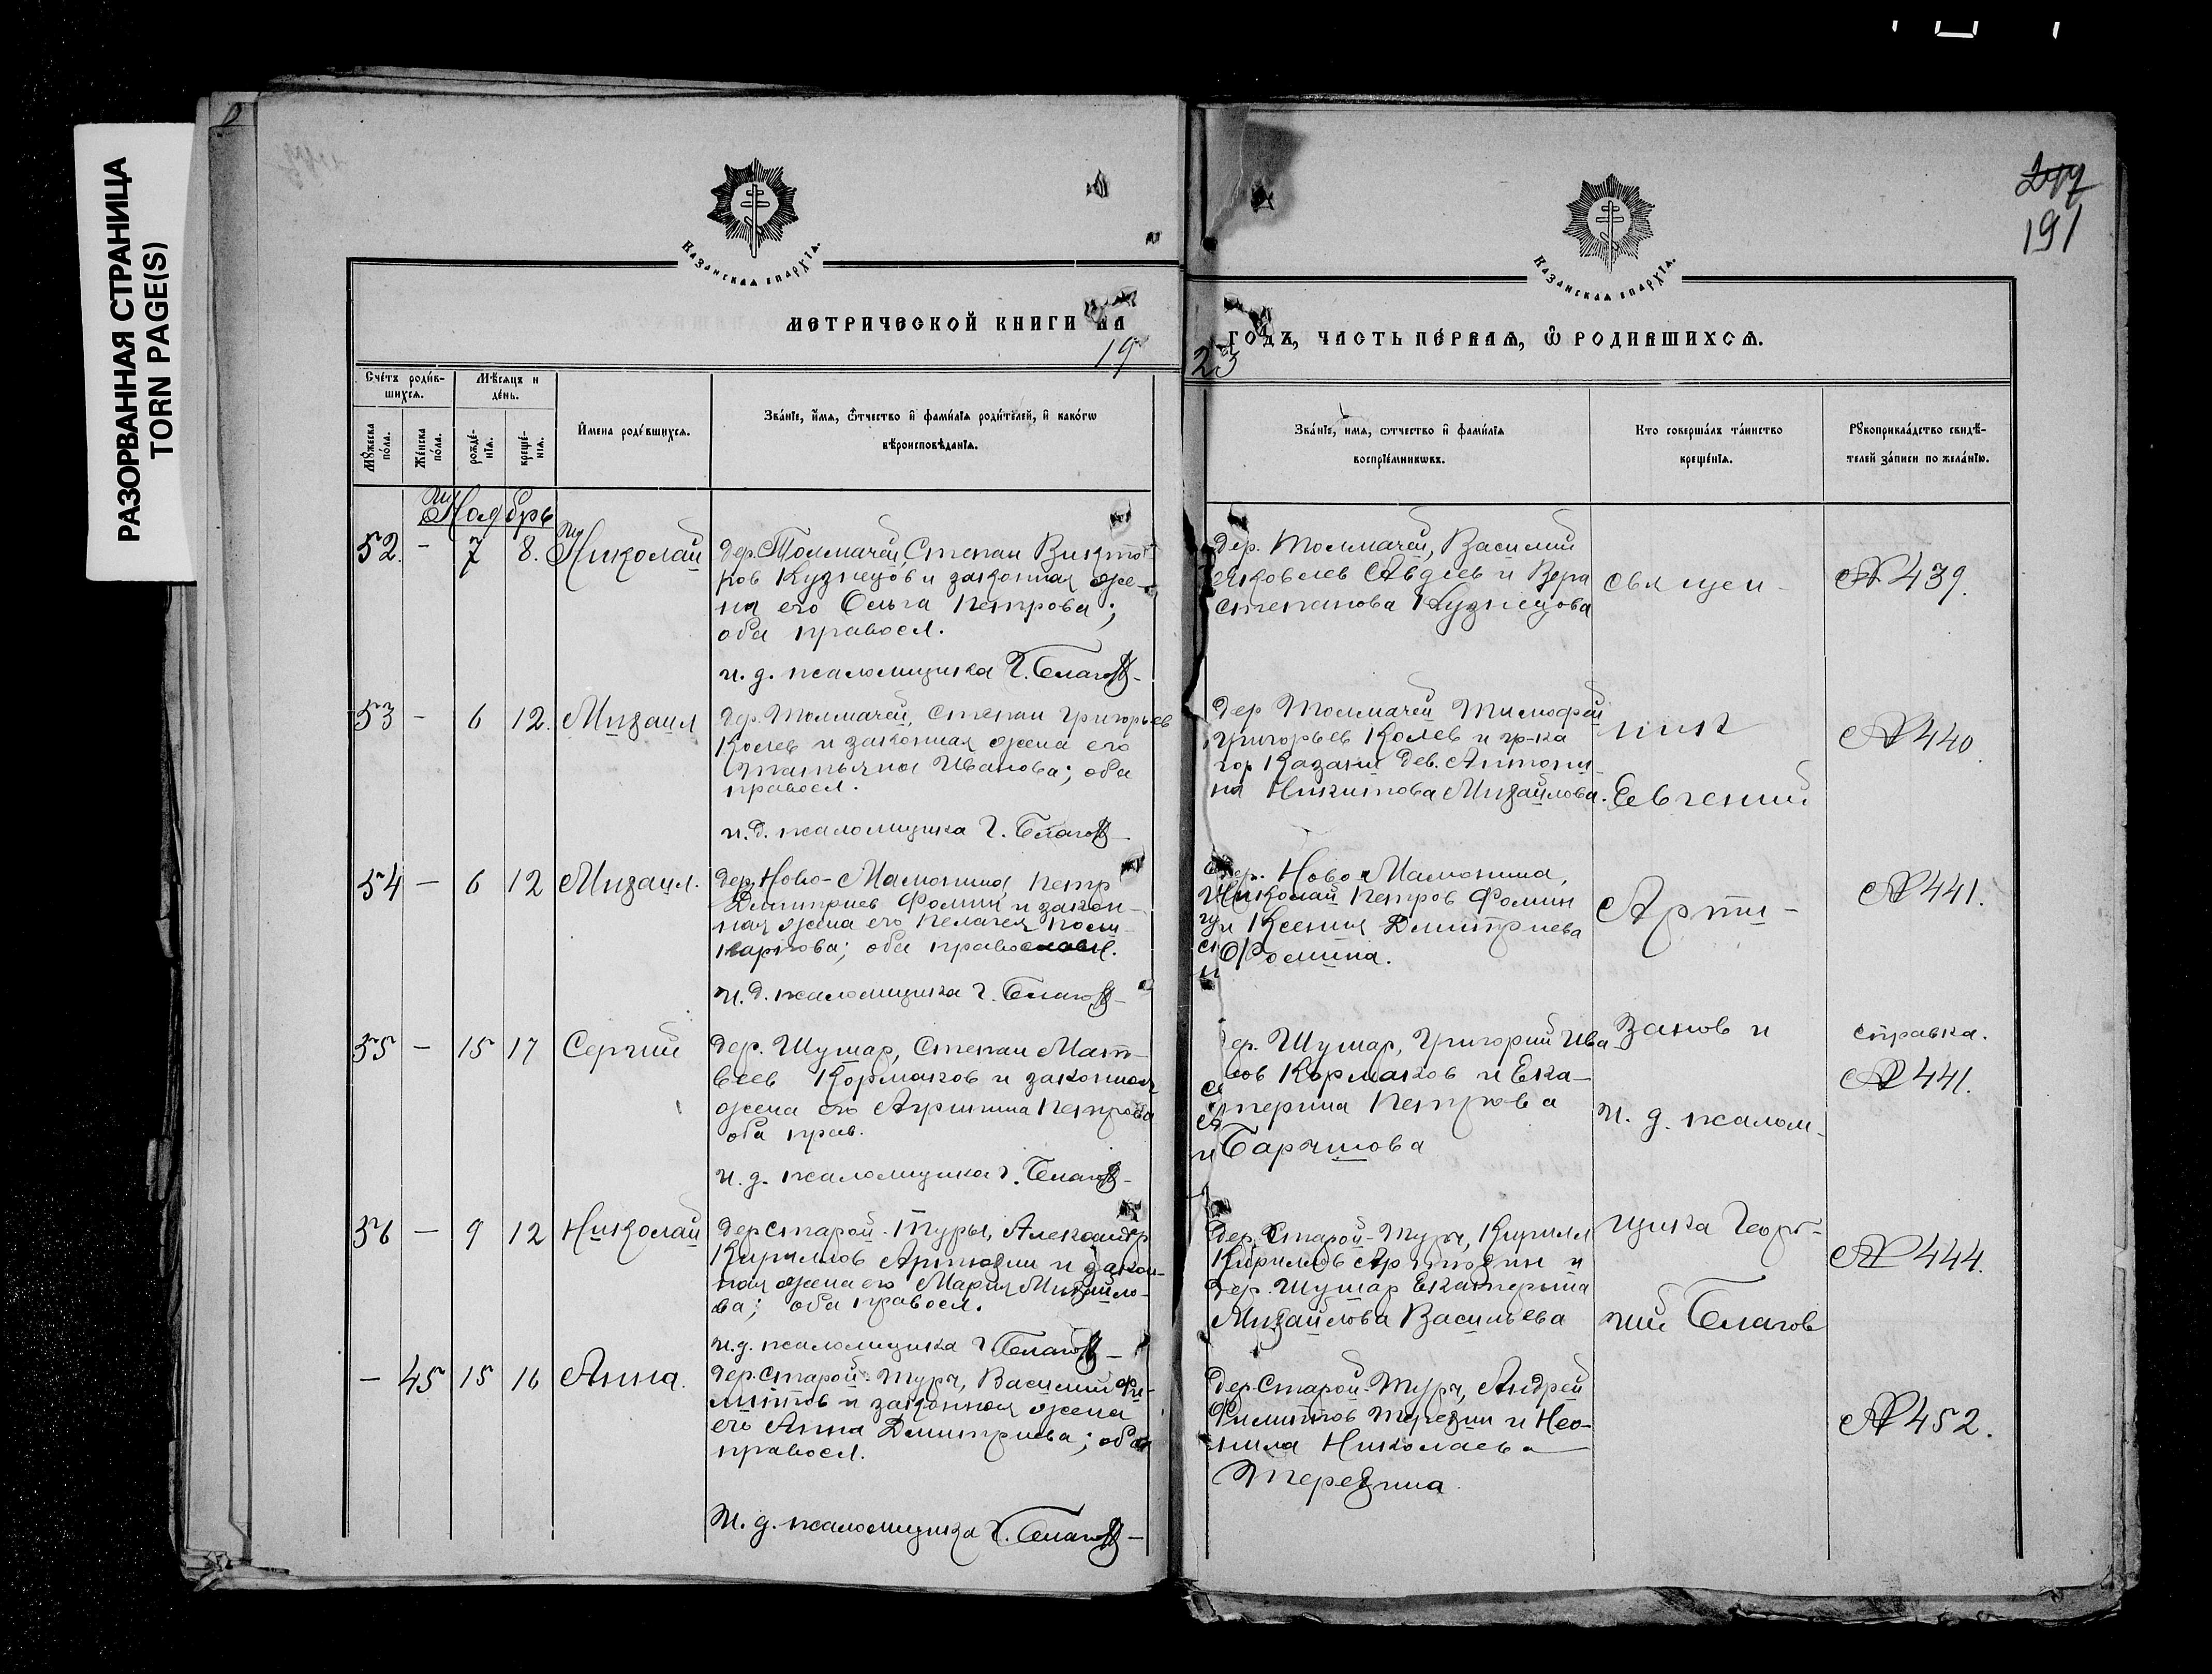 РАЗОРВАННАЯ СТРАНИЦА
TORN PAGE(S)
191
Казанская епархїя.
Казанская епархїя.
МЕТРИЧЕСКОЙ КНИГИ НА 19
23 ГОДЪ, ЧАСТЬ ПЕРВАЯ, Ѿ РОДИВШИХСЯ.
Счетъ родив-
шихся.
Мужеска
пола.
Женска
пола.
Мѣсяцъ и
день.
рожде-
нїя.
креще-
нїя.
Имена родившихся.
Званїе, имя, ѿтчество и фамилїя родителей, и какогѡ
вѣроисповѣданїя.
Званїе, имя, ѡтчество и фамилїя
воспрїемникѡвъ.
Кто совершалъ таинство
крещенїя.
Рукоприкладство свидѣ-
телей записи по желанїю.
Ноябрь
52. - 7 8. Николай
дер. Толмачей, Степан Викто
ров Кузнецов и законная же-
на его Ольга Петрова;
оба правосл.
и. д. псаломщика Г. Благов
дер. Толмачей, Василий
Яковлев Авдеев и Вера
Степанова Кузнецова
Священ-
№ 439.
53 - 6 12. Михаил
дер. Толмачей, Степан Григорьев
Колев и законная жена его
Татьяна Иванова; оба
правосл.
и. д. псаломщика Г. Благов
дер Толмачей Тимофей
Григорьев Колев и гр-ка
гор Казани дев. Антони-
на Никитова Михайлова.
ник
Евгений
№ 440
54 - 6 12 Михаил.
дер. Ново-Мамонина, Петр
Дмитриев Фомин и закон-
ная жена его Пелагея Поли-
карпова; оба правосл.
и. д. псаломщика Г. Благов
дер. Ново Мамонина,
Николай Петров Фомин
и Ксения Дмитриева
Фомина.
Арта-
№ 441.
55 - 15 17 Сергий
дер. Шумар, Степан Мат-
веев Кормаков и законная
жена его Агрипина Петрова
оба прав.
и. д. псаломщика Г. Благов
дер. Шумар, Григорий Ива
нов Кормаков и Ека-
терина Петрова
Барышова
занов и
и. д. псалом-
справка.
№ 441.
56 - 9 12 Николай
дер Старой-Туры, Александр
Кириллов Артюгин и закон-
ная жена его Мария Михайло-
ва; оба правосл.
и. д. псаломщика Г. Благов
дер. Старой-Туры, Кирилл
Кирилов Артюгин и
дер. Шумар Екатерина
Михайлова Васильева
щика Геор-
гий Благов
№ 444.
- 45 15 16 Анна.
дер. Старой-Туры, Василий Фи-
липпов и законная жена
его Анна Дмитриева; оба
правосл.
И. д. псаломщика Г. Благов
дер Старой-Туры, Андрей
Филиппов Терезин и Нео-
нила Николаева
Терезина.
№ 452.